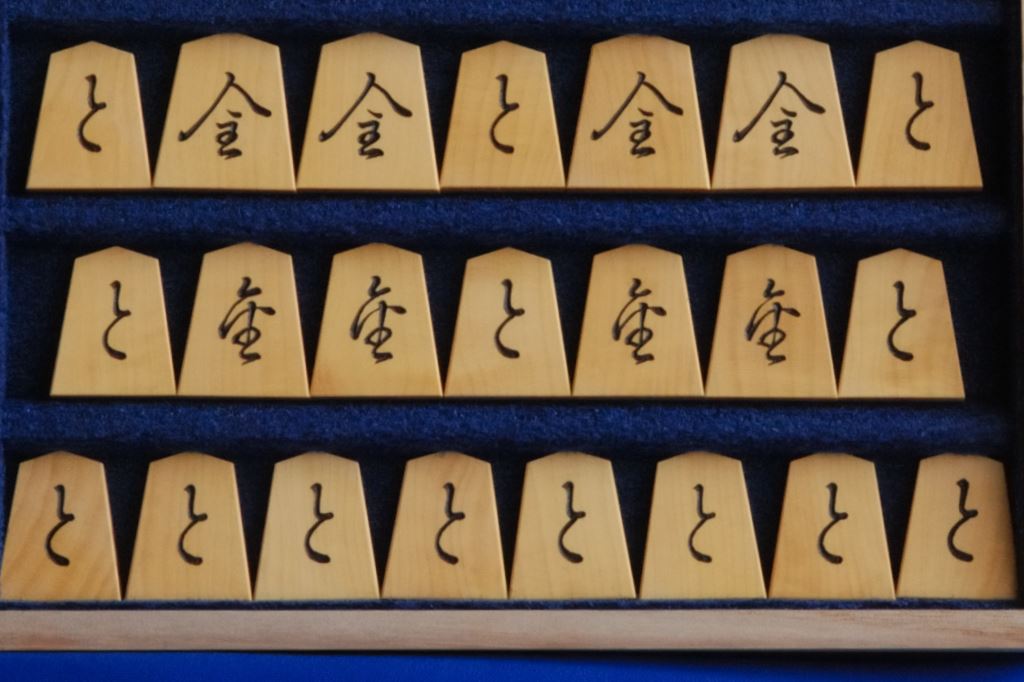 と 金 金 と 金 金 と
と 金 金 と 金 金 と
と と と と と と と と